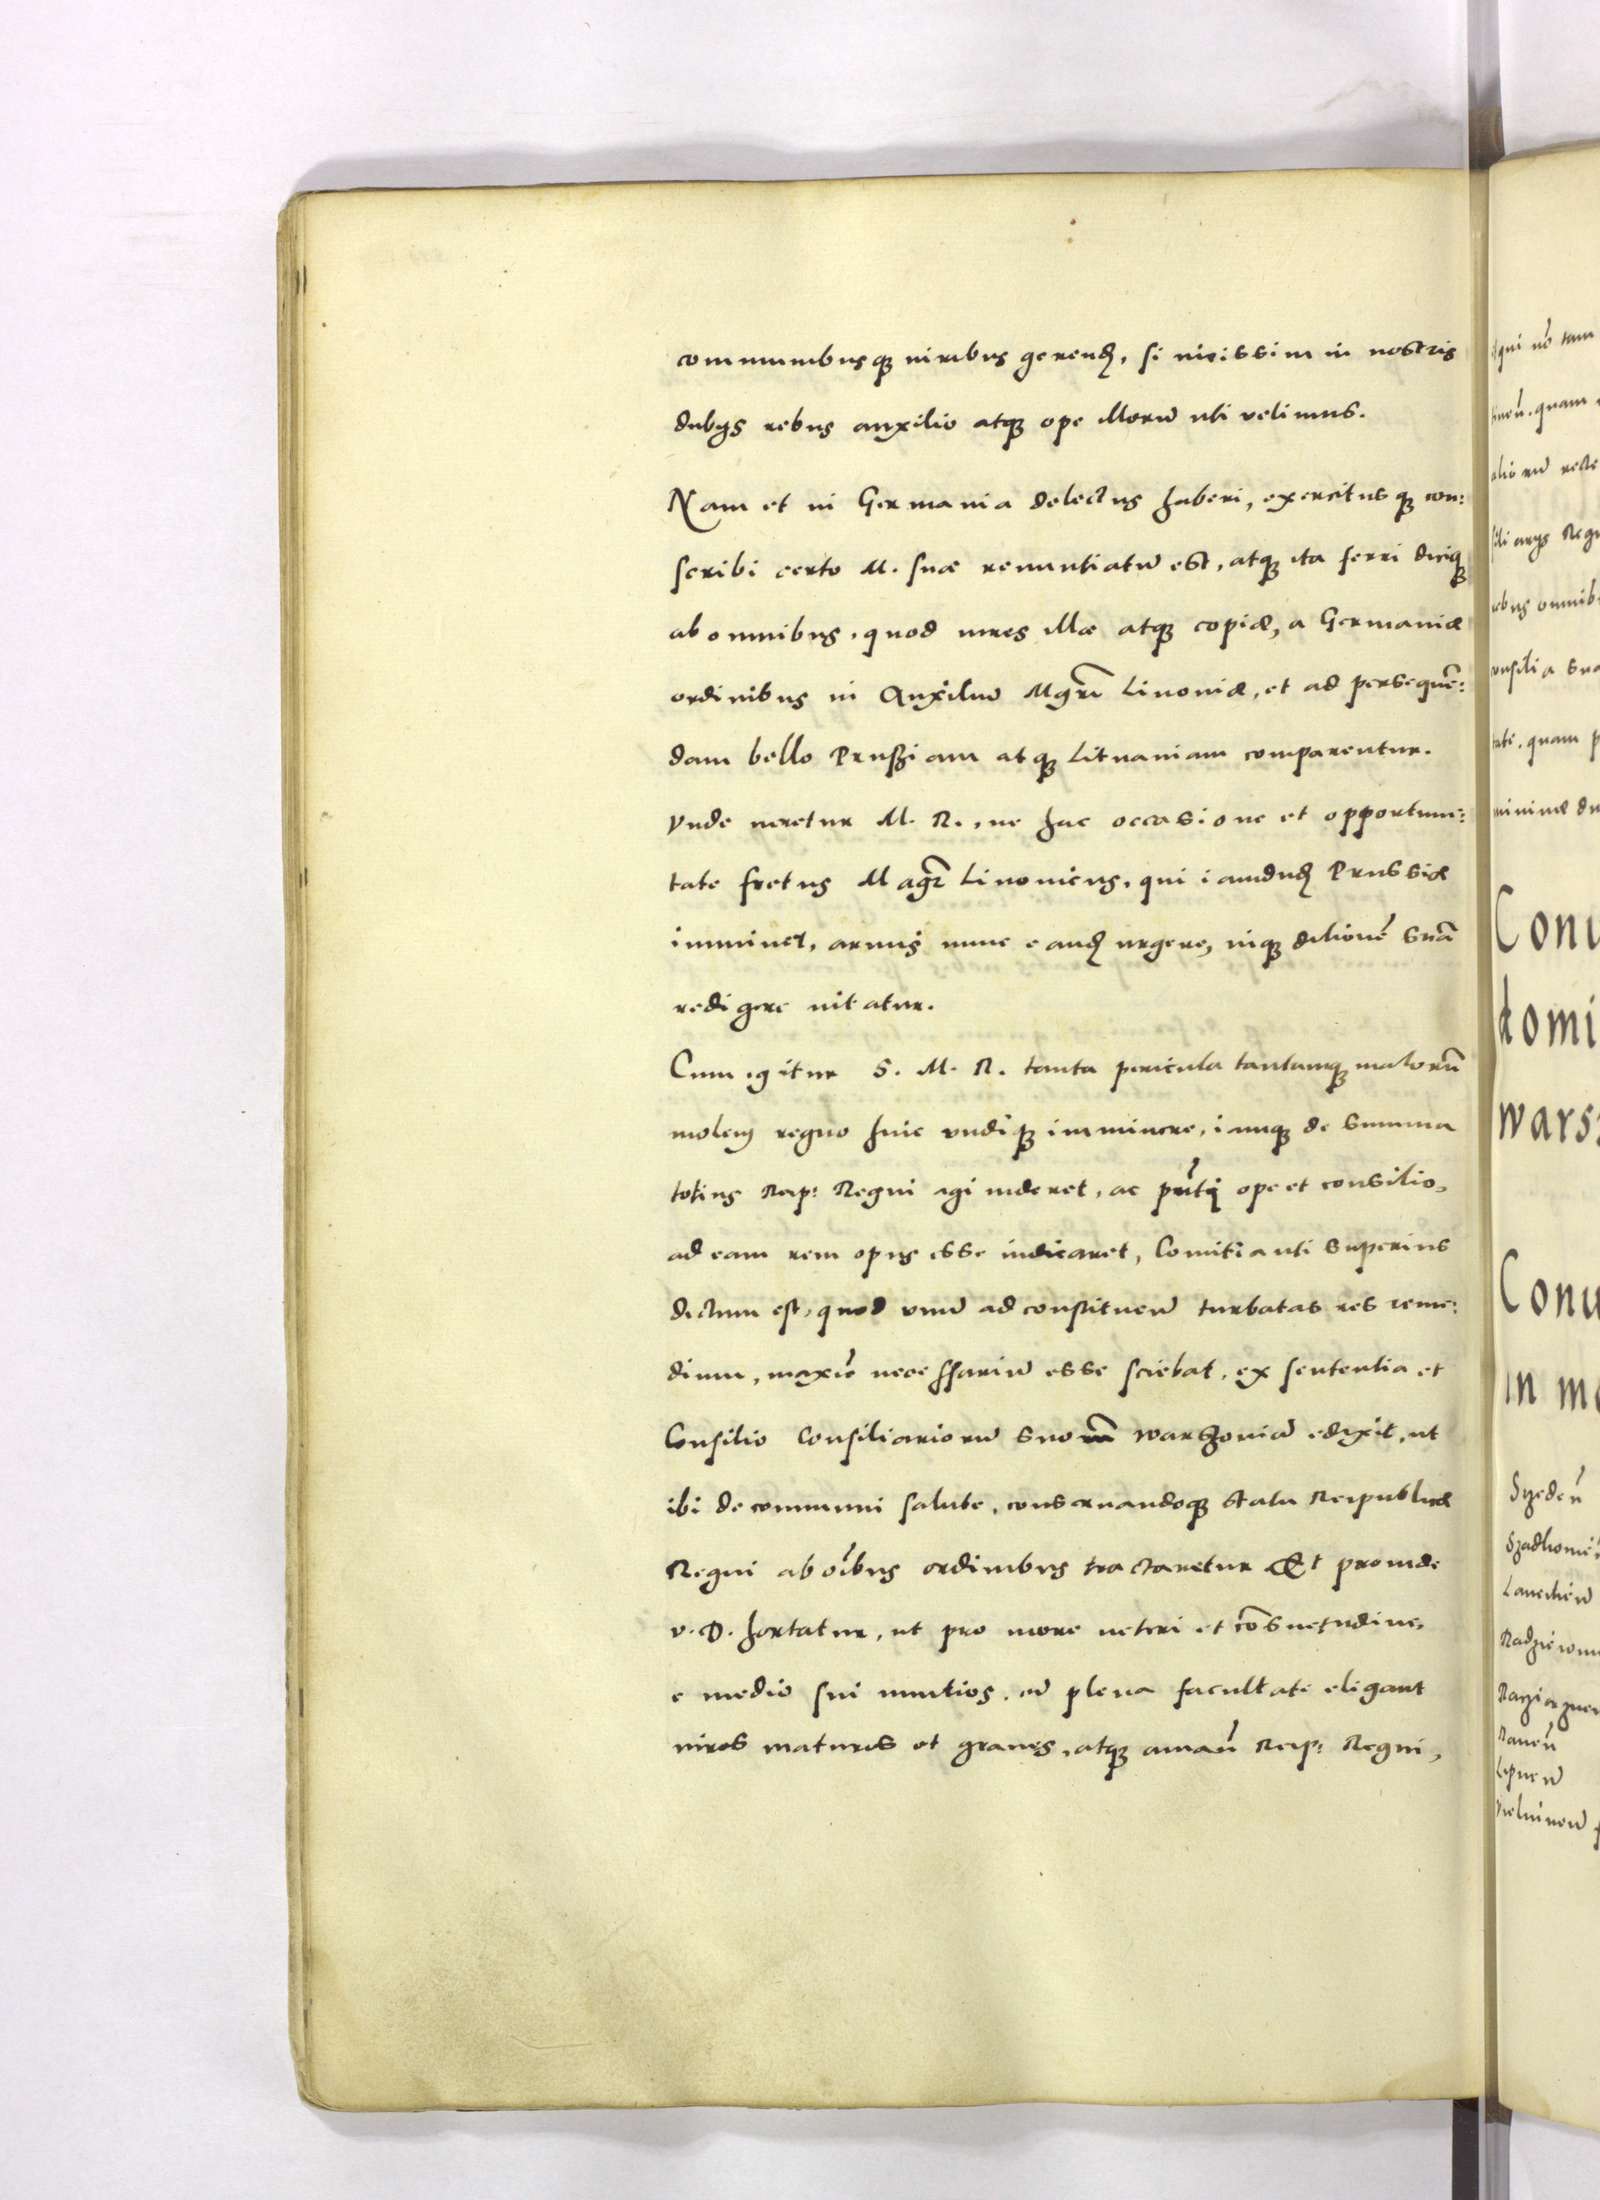 communibusq[ue] uiribus gerend[a], si uicissim in nostris
dubijs rebus auxilio atq[ue] ope illorũ uti velimus.
Nam et in Germania delectus haberi, exercitusq[ue] con:
scribi certo M. suæ renuntiatũ est, atq[ue] ita ferri diciq[ue]
ab omnibus, quod uires illæ atq[ue] copiæ, a Germaniæ
ordinibus in Auxiliũ Mgr̃i Liuoniæ, et ad persequẽ:
dam bello Prusziam atq[ue] Lituaniam comparentur.
Vnde ueretur M. R., ne hac occasione et opportuni:
tate fretus Magr̃ Liuonicus, qui iamdud[um] Prussiæ
imminet, armis nunc eand[em] urgere, inq[ue] ditionẽ suã
redigere nitatur.
Cum igitur S. M. R. tanta pericula tantamq[ue] malorũ
molem regno huic vndiq[ue] imminere, iamq[ue] de summa
totius Reip: Regni agi uideret, ac pñti ope et consilio,
ad eam rem opus esse iudicaret, Comitia uti superius
dictum est, quod vnũ ad constituen̄ turbatas res reme:
dium, maxiẽ necessariũ esse sciebat, ex sententia et
Consilio Consiliariorũ suorũ Warszouiã edixit, ut
ibi de communi salute, conseruandoq[ue] statu Reipublicæ
Regni ab oĩbus ordinibus tractaretur Et proinde
v. D. hortatur, ut pro more ueteri et cõsuetudine,
e medio sui nuntios, cũ plena facultate eligant
uiros maturos et graues, atq[ue] aman̄ Reip: Regni,
qui nõ tam
quam
aliorũ recte
siliarijs Reg
rebus omnib
consilia sua
tate, quam p
minimæ du
Conu
domi
wars
Conu
in m
Szeden̄
Lancicien̄
Rauen̄
Lipnen̄
Vielunen̄